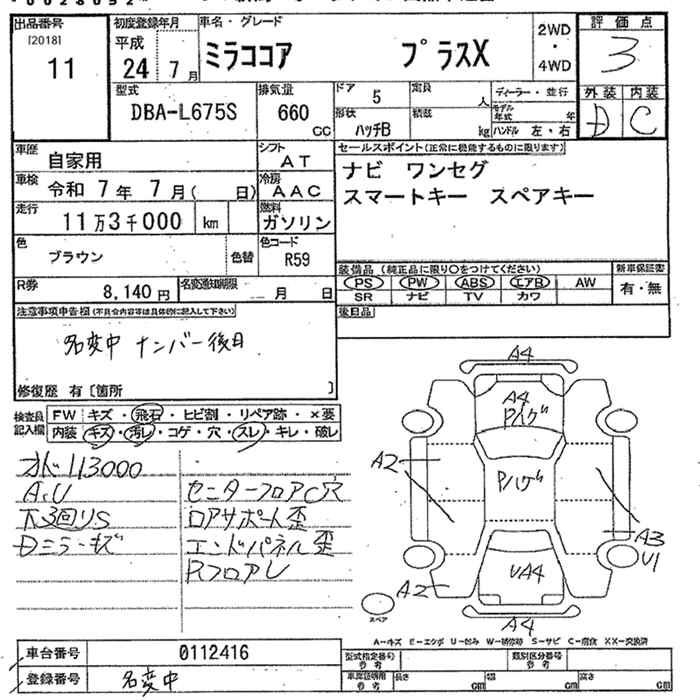 出品番号
[2018]
11
初度登録年月
平成
24 7 月
車名・グレード
ミラココア プラスX
2WD
・
4WD
評価点
3
外装 内装
D C
型式
DBA-L675S
排気量
660
CC
ドア 5
形状
ハッチB
定員
人
積載
kg
ディーラー・並行
モデル年式 年
ハンドル 左・右
車歴
自家用
シフト
AT
車検
令和 7 年 7 月( 日)
冷房
AAC
走行
11万3千000 km
燃料
ガソリン
色
ブラウン
色替
色コード
R59
R券
8,140 円
名変通知期限
月 日
セールスポイント(正常に機能するものに限ります)
ナビ ワンセグ
スマートキー スペアキー
装備品(純正品に限り○をつけてください)
PS PW ABS エアB AW
SR ナビ TV カワ
新車保証書
有・無
後日品
注意事項申告欄(不具合内容等は具体的に記入して下さい)
名変中 ナンバー後日
修復歴 有〔箇所 〕
検査員
記入欄
FW キズ・飛石・ヒビ割・リペア跡・×要
内装 キズ・汚レ・コゲ・穴・スレ・キレ・破レ
オド113000
A,U
下3回りS
Dミラーキズ
センターフロアC穴
ロアサポート歪
エンドパネル歪
RフロアU
A4
A4
Pハゲ
A2
Pハゲ
A3
U1
UA4
A2
A4
スペア
A-キズ E-エクボ U-凹み W-補修跡 S-サビ C-腐食 XX-交換済
車台番号
0112416
登録番号
名変中
型式指定番号
参考
類別区分番号
参考
車庫証明用
参考
長さ cm
幅 cm
高さ cm